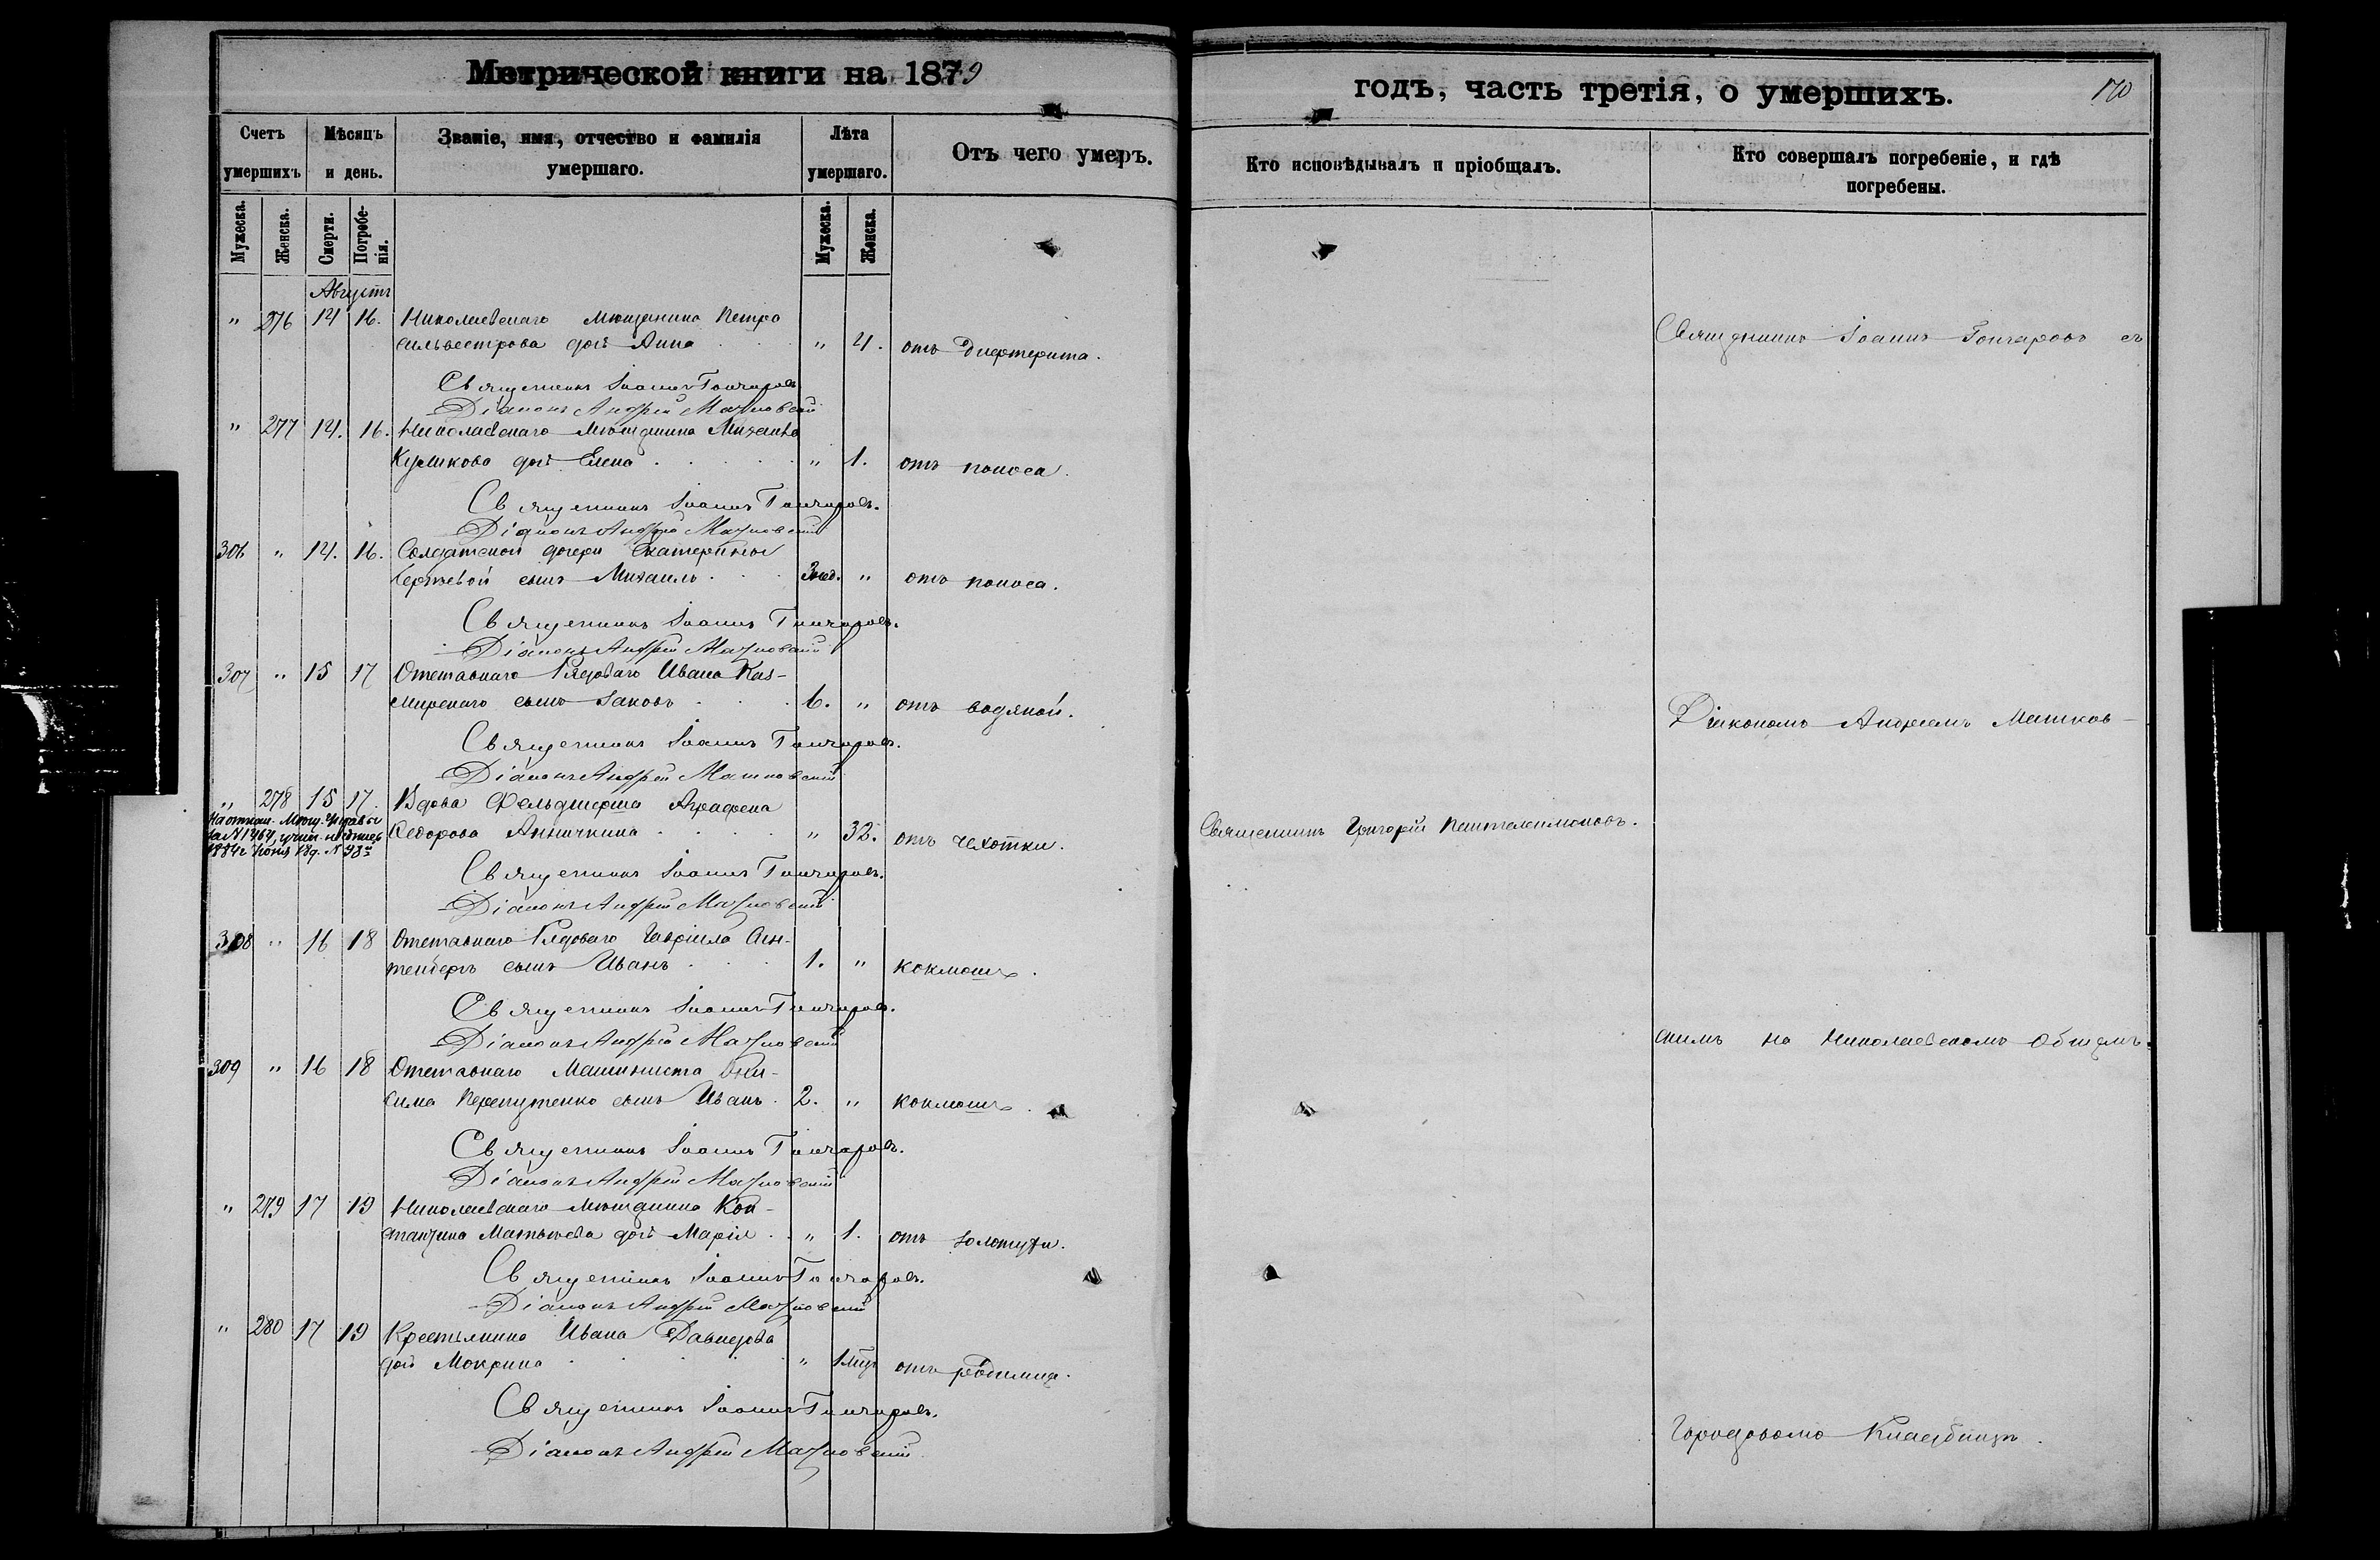 Метрической книги на 1879
годъ, часть третія, о умершихъ.
170
Счетъ умершихъ
Мѣсяцъ и день.
Званіе, имя, отчество и фамилія умершаго.
Лѣта умершаго.
Отъ чего умеръ.
Кто исповѣдывалъ и пріобщалъ.
Кто совершалъ погребеніе, и гдѣ погребены.
Мужеска.
Женска.
Смерти.
Погребенія.
Мужеска.
Женска.
Августъ
" 276 14 16. Николаевскаго мѣщанина Петра
Сильвестрова дочь Анна " 4. отъ дифтерита.
Священникъ Іоаннъ Гончаровъ съ
Священникъ Іоаннъ Гончаровъ
Діаконъ Андрей Машковскій
" 277 14. 16. Николаевскаго мѣщанина Михаила
Куликова дочь Елена " 1. отъ поноса.
Священникъ Іоаннъ Гончаровъ.
Діаконъ Андрей Машковскій
306 " 14. 16. Солдатской дочери Екатерины
сынъ Михаилъ 3 нед. " отъ поноса.
Священникъ Іоаннъ Гончаровъ.
Діаконъ Андрей Машковскій
307 " 15 17 Отставнаго Рядоваго Ивана Каз-
мирскаго сынъ Іаковъ 6. " отъ водяной.
Діакономъ Андреемъ Машков-
Священникъ Іоаннъ Гончаровъ.
Діаконъ Андрей Машковскій
" 278 15 17. Вдова Фельдшерша Аграфена
Федорова Аничкина " 32. отъ чехотки.
Священникъ Григорій Пантелимоновъ.
На отнош. Управы
за № 1464,
1884 г. Іюня 18 д. №
Священникъ Іоаннъ Гончаровъ.
Діаконъ Андрей Машковскій
308 " 16 18 Отставнаго Рядоваго Гавріила
сынъ Иванъ 1. " коклюшъ.
Священникъ Іоаннъ Гончаровъ.
Діаконъ Андрей Машковскій
скимъ на Николаевскомъ общемъ
309 " 16 18 Отставнаго Машиниста Они-
сима Перепутенко сынъ Иванъ. 2. " коклюшъ.
Священникъ Іоаннъ Гончаровъ.
Діаконъ Андрей Машковскій
" 279 17 19 Николаевскаго мѣщанина Кон-
стантина Матвѣева дочь Марія " 1. отъ золотухи.
Священникъ Іоаннъ Гончаровъ.
Діаконъ Андрей Машковскій
" 280 17 19 Крестьянина Ивана Давидова
дочь Мокрина " 1 мѣц. отъ родимца.
Священникъ Іоаннъ Гончаровъ.
Городовомъ Кладбищѣ.
Діаконъ Андрей Машковскій